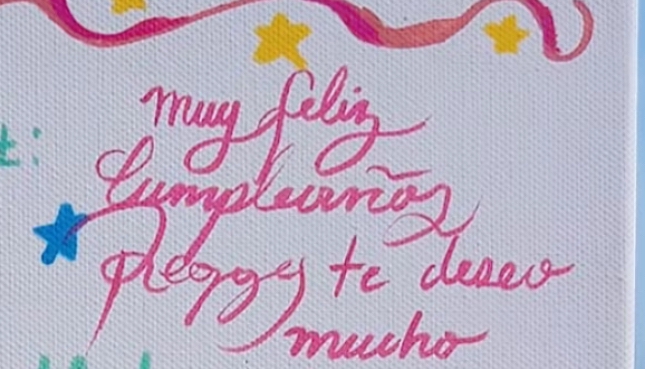 muy feliz
t:
Cumpleaños
Peggy te deseo
mucho